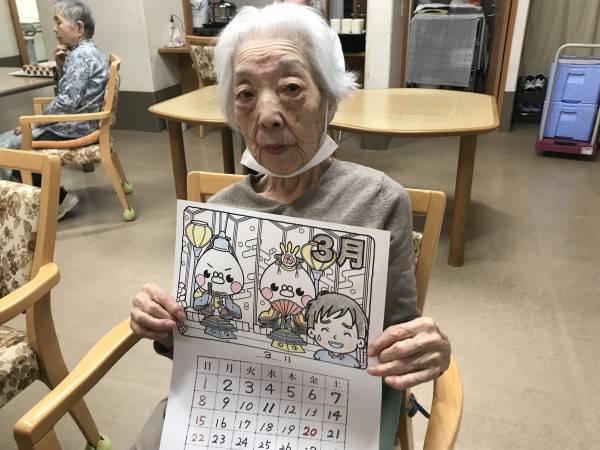 3月
3月
日 月 火 水 木 金 土
1 2 3 4 5 6 7
8 9 10 11 12 13 14
15 16 17 18 19 20 21
22 23 24 25 26